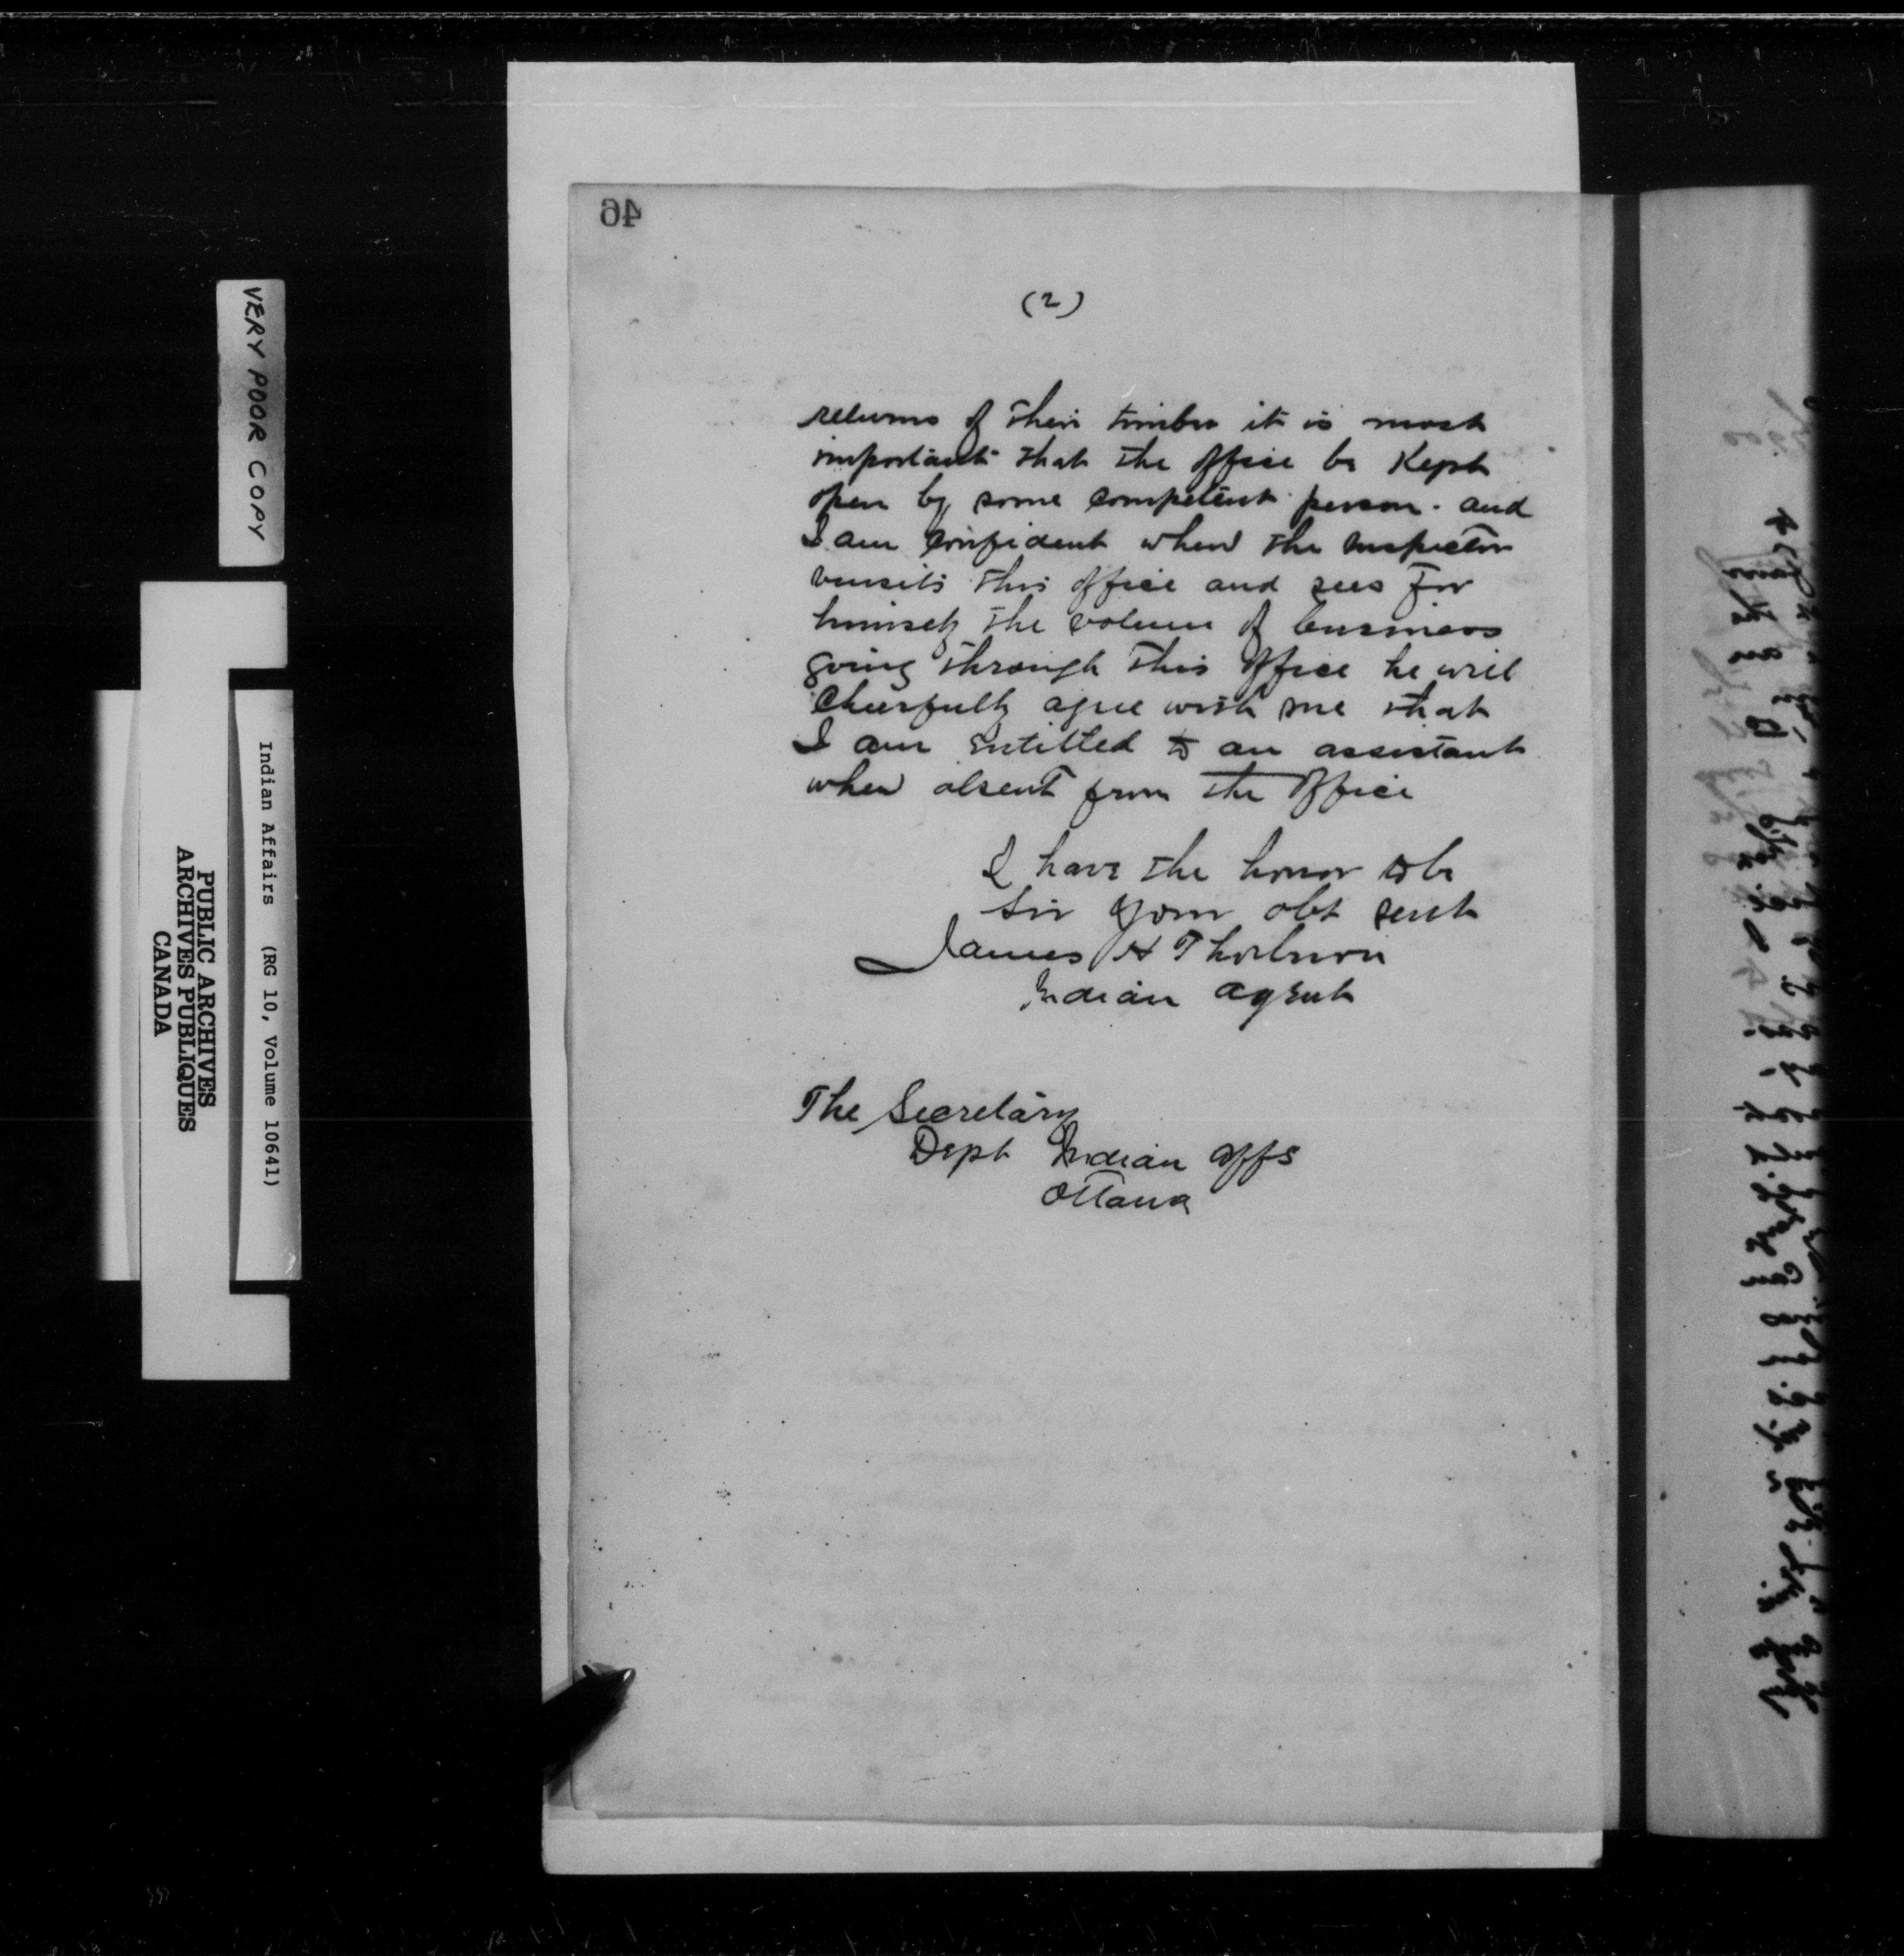 46
(2)
returns of their timber it is most
important that the office be Kept
open by some competent person. and
I am confident when the Inspector
vissits this office and sees for
himself the volume of business
going through this office he will
Cheerfully agree with me that
I am entitled to an assistant
when absent from the office
I have the honor to be
Sir your obt servt
James H Thorburn
Indian Agent
The Secretary
Dept Indian Affs
Ottawa
VERY POOR COPY
Indian Affairs (RG 10, Volume 10641)
PUBLIC ARCHIVES
ARCHIVES PUBLIQUES
CANADA